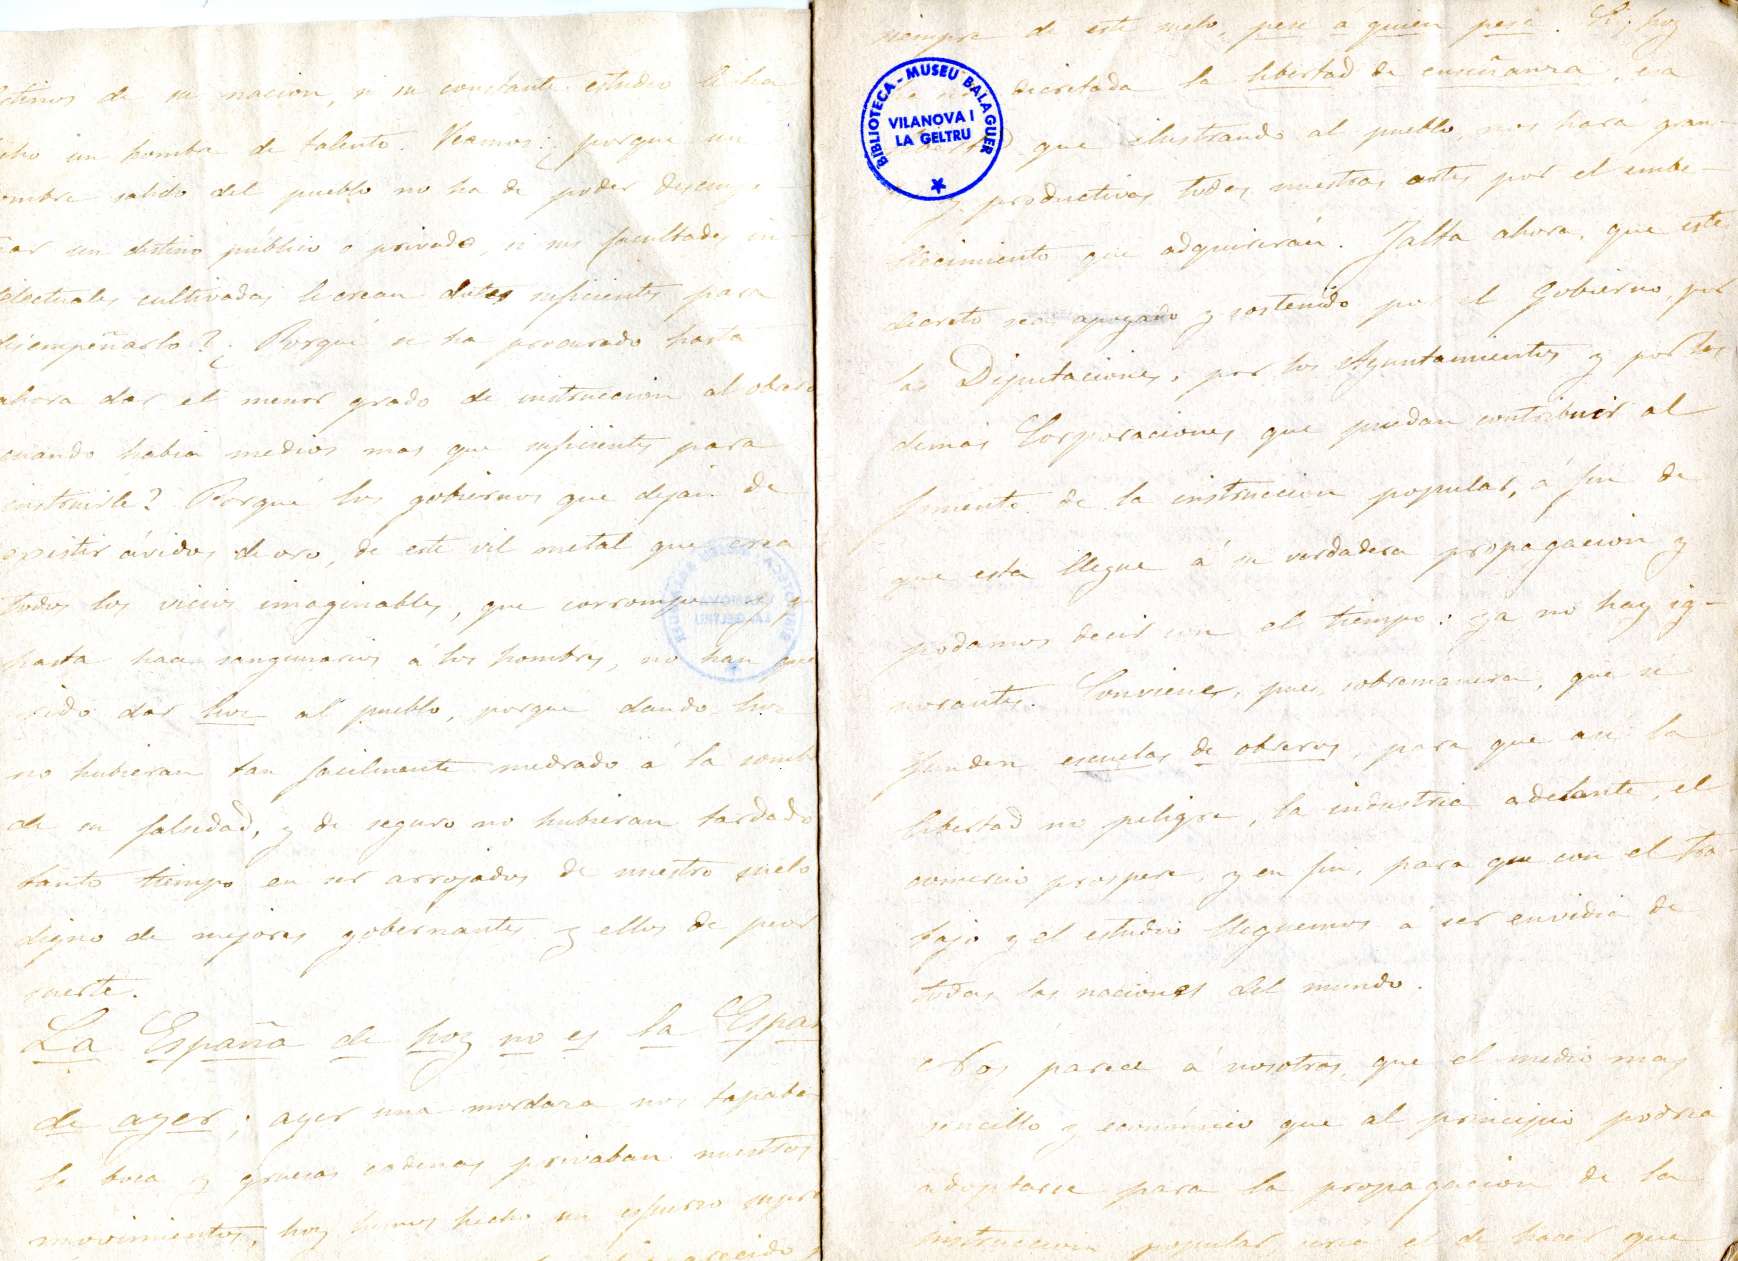 de su nacion, si su constante estudio le ha
un hombre de talento. Veamos: ¿porque un
salido del pueblo no ha de poder desempe-
un destino público o privado, si sus facultades in-
cultivadas le crean dotes suficientes para
desempeñarlo? ¿Porqué se ha procurado hasta
ahora dar el menor grado de instruccion al obrero
cuando habia medios mas que suficientes para
instruirle? Porqué los gobiernos que dejan de
existir ávidos de oro, de este vil metal que crea
todos los vicios imaginables, que corrompe y
hasta hace sanguinarios á los hombres, no han que-
rido dar luz al pueblo, porque dando luz
no hubieran tan facilmente medrado á la sombra
de su falsedad, y de seguro no hubieran tardado
tanto tiempo en ser arrojados de nuestro suelo
digno de mejores gobernantes y ellos de peor
suerte.
La España de hoy no es la España
de ayer; ayer una mordaza nos tapaba
la boca y gruesas cadenas privaban nuestros
movimientos, hoy hemos hecho un esfuerzo
siempre de este suelo, pese a quien pese. hoy
decretada la libertad de enseñanza,
que ilustrando al pueblo, nos hará gran-
y productivas todas nuestras artes por el embe-
llecimiento que adquirirán. Falta ahora, que este
decreto sea apoyado y sostenido por el Gobierno, por
las Diputaciones, por los Ayuntamientos y por las
demas Corporaciones que puedan contribuir al
fomento de la instruccion popular, á fin de
que esta llegue á su verdadera propagacion y
podamos decir con el tiempo: ya no hay ig-
norantes. Conviene, pues, sobremanera, que se
funden escuelas de obreros, para que asi la
libertad no peligre, la industria adelante, el
comercio prospere, y en fin, para que con el tra-
bajo y el estudio lleguemos á ser envidia de
todas las naciones del mundo.
Nos parece á nosotros, que el medio mas
sencillo y económico que al principio podria
adoptarse para la propagacion de la
instruccion popular, seria el de hacer que
BIBLIOTECA - MUSEU BALAGUER
VILANOVA I
LA GELTRU